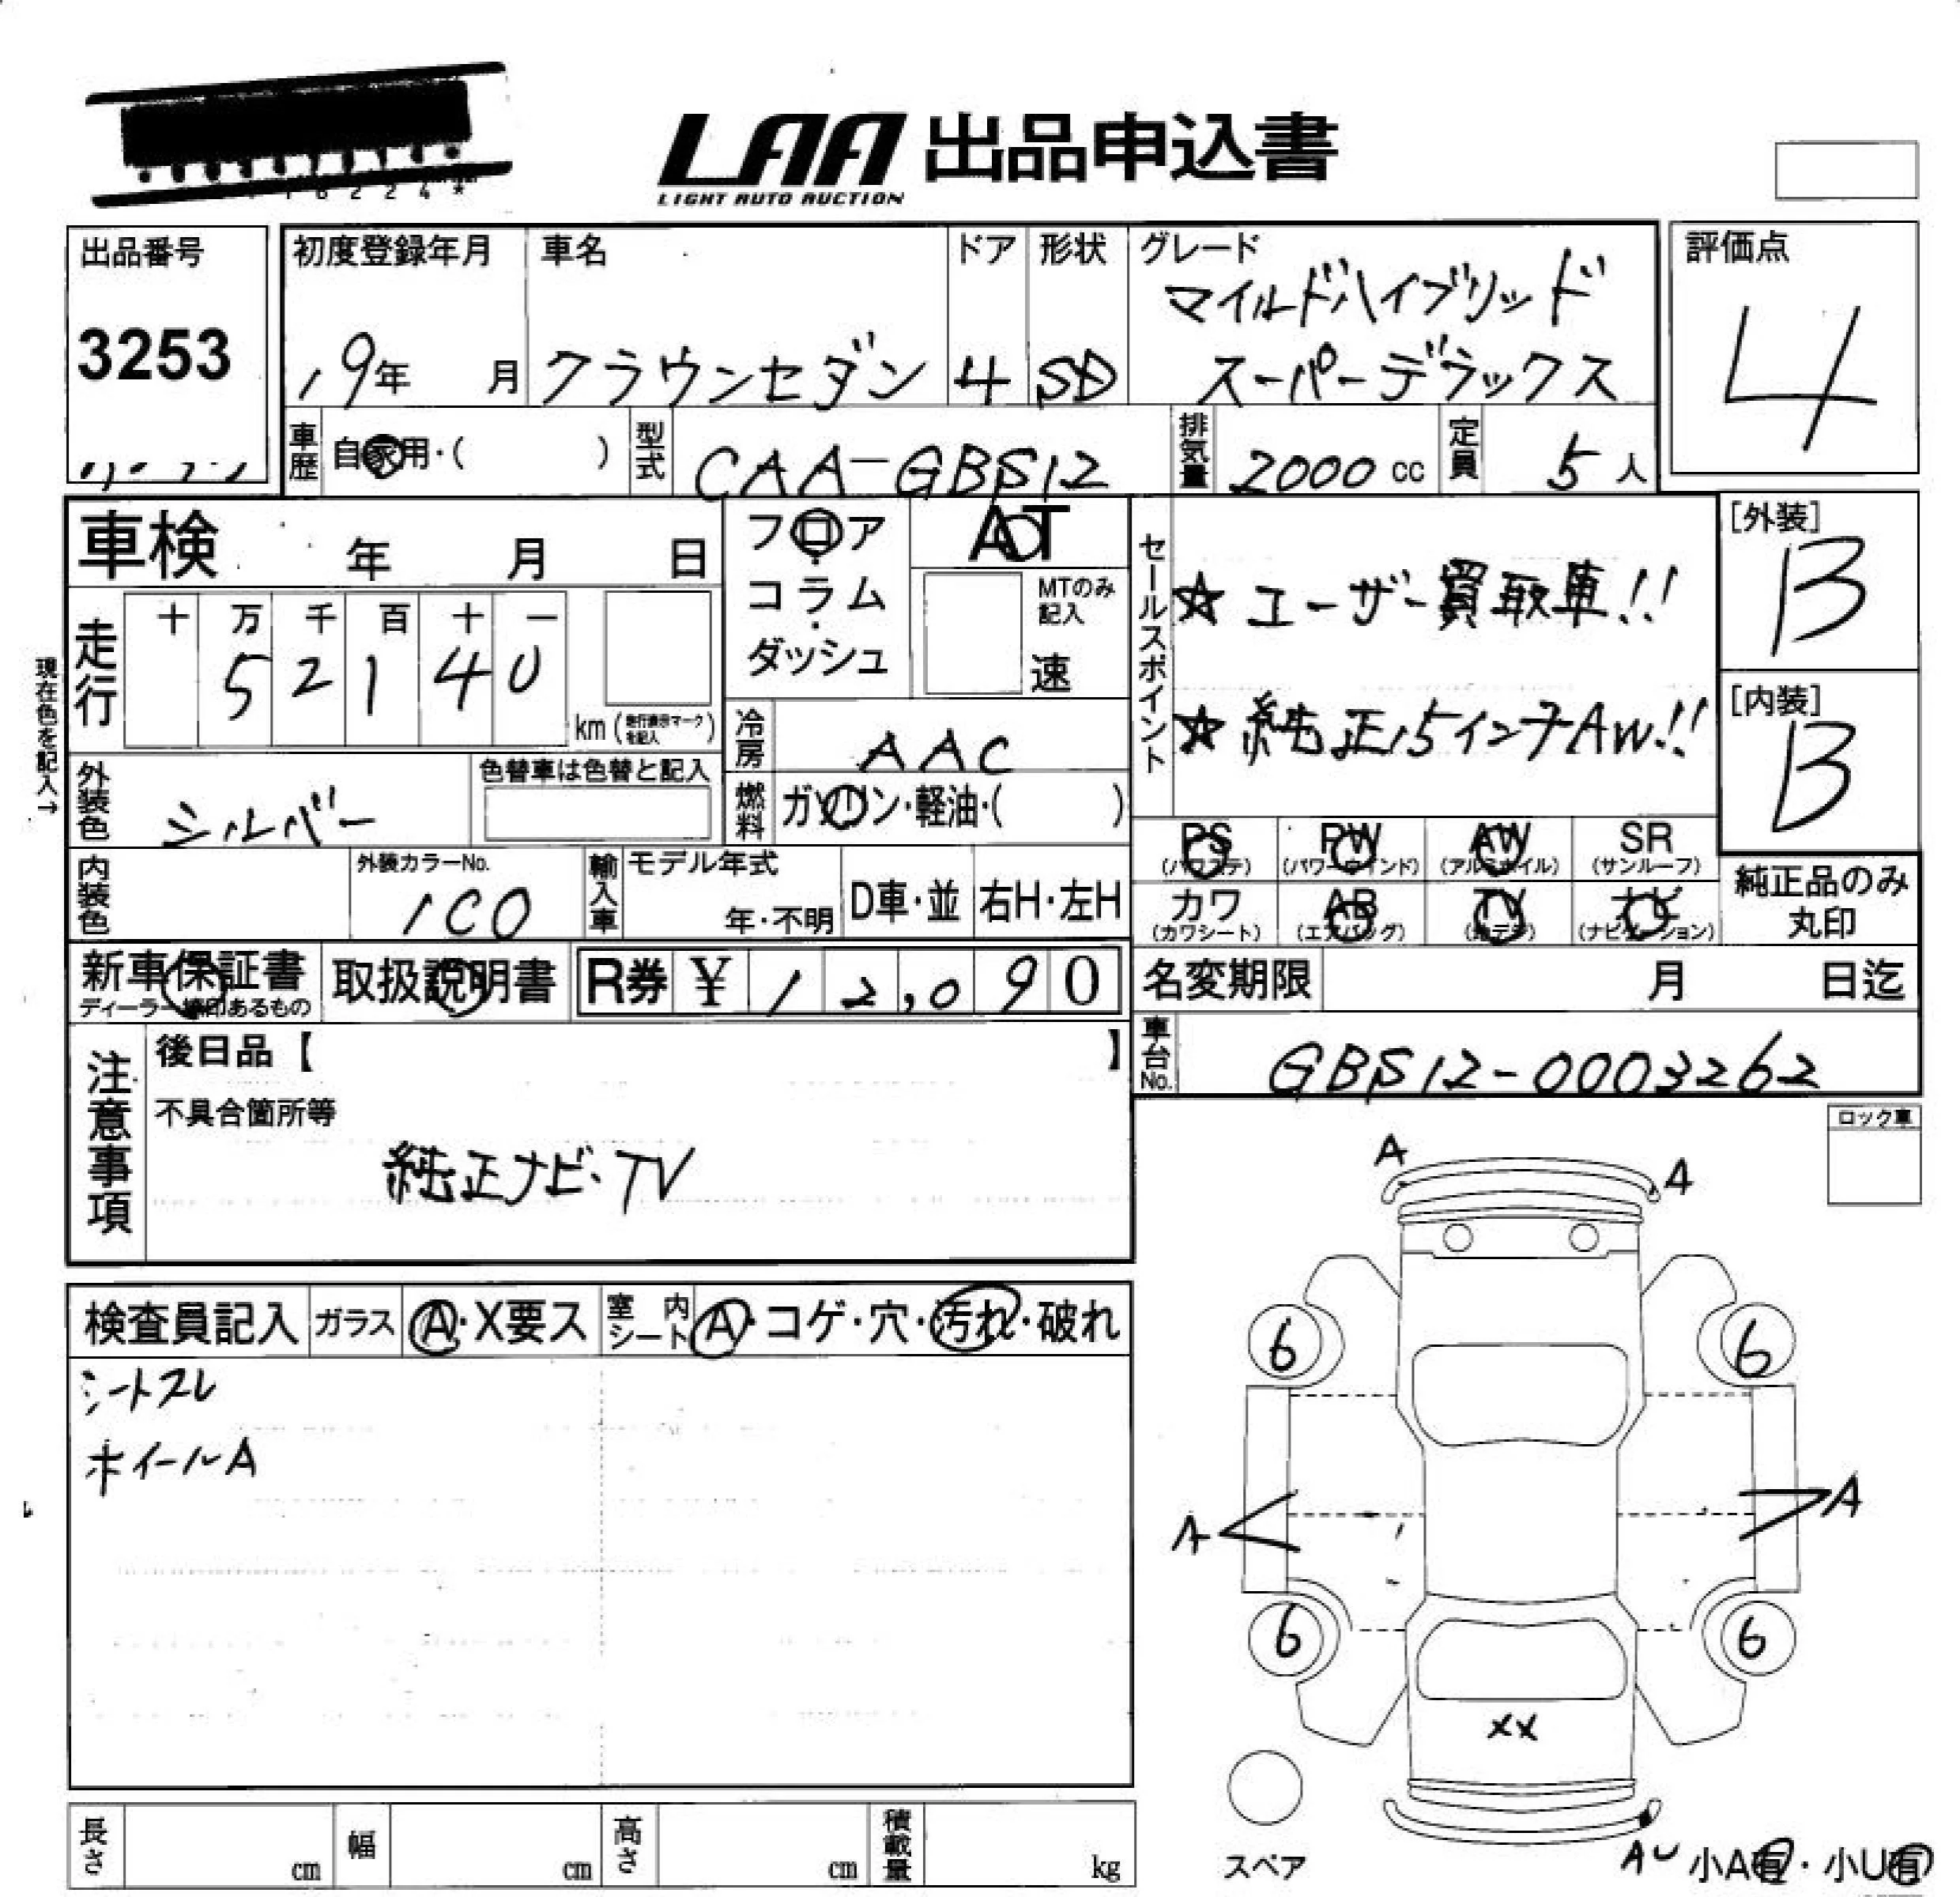 LAA 出品申込書
LIGHT AUTO AUCTION
6 2 2 4 *
出品番号
3253
初度登録年月
19年 月
車名
クラウンセダン
ドア
4
形状
SD
グレード
マイルドハイブリッド
スーパーデラックス
評価点
4
車歴 自家用・( )
型式 CAA-GBS12
排気量 2000 cc
定員 5 人
車検 年 月 日
フロア
・
コラム
・
ダッシュ
AT
MTのみ
記入
速
セールスポイント
☆ ユーザー買取車!!
☆ 純正15インチAW!!
[外装]
B
[内装]
B
現在色を記入→
走行
十 万 千 百 十 一
5 2 1 4 0
km (走行表示マークを記入)
冷房 AAC
燃料 ガソリン・軽油・( )
外装色 シルバー
色替車は色替と記入
内装色
外装カラーNo.
1C0
輸入車
モデル年式
年・不明
D車・並
右H・左H
PS (パワステ)
PW (パワーウインド)
AW (アルミホイル)
SR (サンルーフ)
カワ (カワシート)
AB (エアバッグ)
TV (地デジ)
ナビ (ナビゲーション)
純正品のみ
丸印
新車保証書
ディーラー捺印あるもの
取扱説明書
R券 ¥ 1 2,0 9 0
名変期限 月 日迄
車台No. GBS12-0003262
注意事項
後日品【 】
不具合箇所等
純正ナビ・TV
ロック車
検査員記入
ガラス A・X要ス
室内シート A・コゲ・穴・汚れ・破れ
シートスレ
ホイールA
A
A
6
6
A
A
6
6
XX
スペア
AU 小A有・小U有
長さ cm
幅 cm
高さ cm
積載量 kg